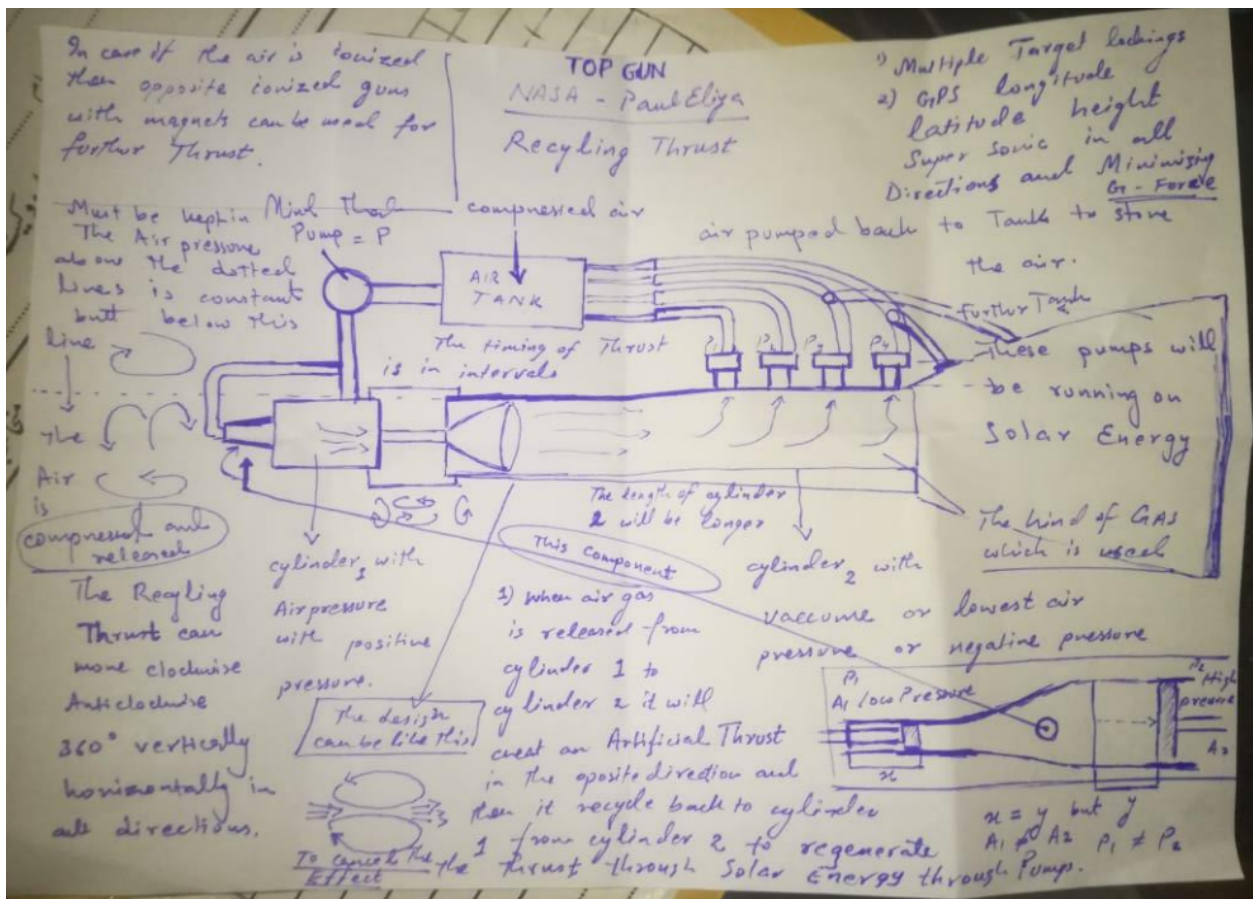 In case if the air is ionized
then opposite ionized guns
with magnets can be used for
further Thrust.
TOP GUN
NASA - Paul Eliya
Recyling Thrust
1) Multiple Target lockings
2) GPS longitude
latitude height
Super Sonic in all
Directions and Minimizing
G - Force
Must be kept in Mind That
The Air pressure
above the dotted
lines is constant
butt below this
line
The
Air
is
compressed and
released
Pump = P
compressed air
AIR
TANK
air pumped back to Tank to store
the air.
further Tank
The timing of Thrust
is in intervals
P1
P2
P3
P4
These pumps will
be running on
Solar Energy
The length of cylinder
2 will be longer
The kind of GAS
which is used
This component
cylinder1 with
Air pressure
with positive
pressure.
cylinder2 with
vaccume or lowest air
pressure or negative pressure
The Recyling
Thrust can
move clockwise
Anticlockwise
360° vertically
horizontally in
all directions.
The design
can be like this
To cancel the
Effect
1) when air gas
is released from
cylinder 1 to
cylinder 2 it will
creat an Artificial Thrust
in the oposite direction and
then it recycle back to cylinder
1 from cylinder 2 to regenerate
the Thrust through Solar Energy through Pumps.
P1
A1 low Pressure
P2
High
pressure
A2
x
x = y but y
A1 ≠ A2 P1 ≠ P2